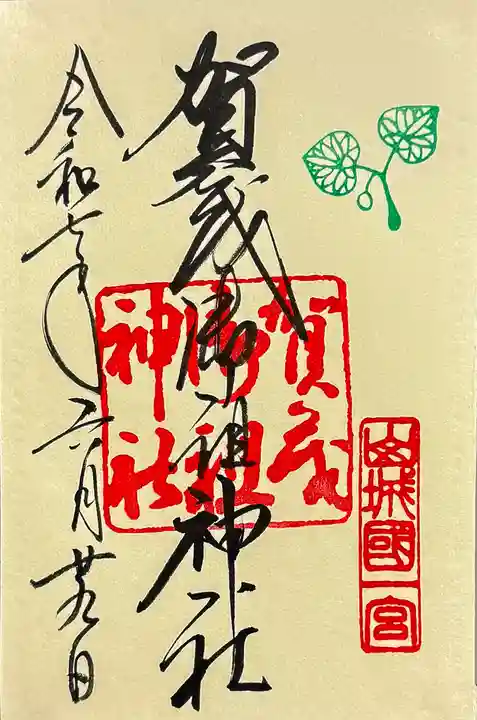 山城國一宮
賀茂御祖神社
賀茂
御祖
神社
令和七年六月廿九日